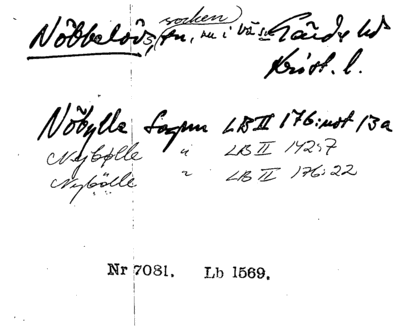 (socken)
Nöbbelövs, sn, nu i V: s Gärds hd
Krist. l.
Nöbylle sogn LB II 176: not 13a
Nybølle " LB II 142:7
Nybölle " LB II 176:22
Nr 7081. Lb 1569.